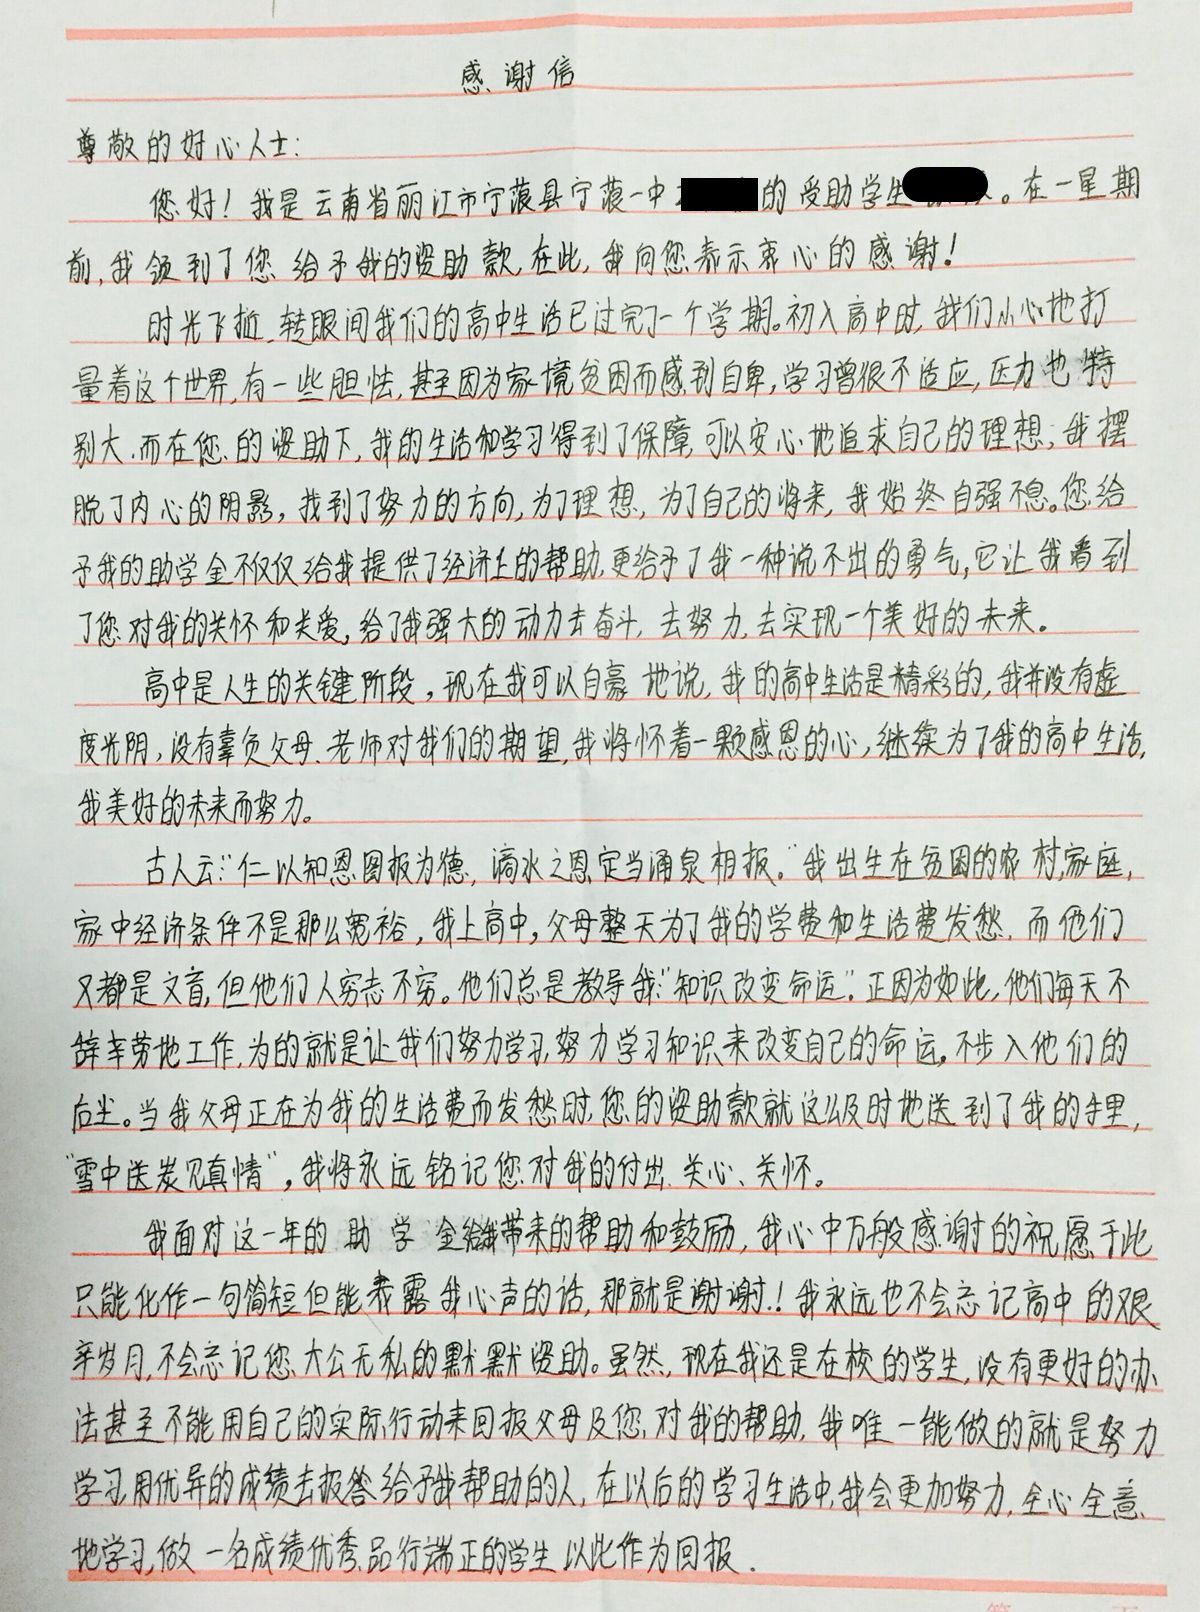 感谢信
尊敬的好心人士:
您好!我是云南省丽江市宁蒗县宁蒗一中的受助学生。在一星期
前,我领到了您给予我的资助款,在此,我向您表示衷心的感谢!
时光飞逝,转眼间我们的高中生活已过完了一个学期。初入高中时,我们小心地打
量着这个世界,有一些胆怯,甚至因为家境贫困而感到自卑,学习曾很不适应,压力也特
别大.而在您的资助下,我的生活和学习得到了保障,可以安心地追求自己的理想;我摆
脱了内心的阴影,找到了努力的方向,为了理想,为了自己的将来,我始终自强不息。您给
予我的助学金不仅仅给我提供了经济上的帮助,更给予了我一种说不出的勇气,它让我看到
了您对我的关怀和关爱,给了我强大的动力去奋斗,去努力,去实现一个美好的未来。
高中是人生的关键阶段,现在我可以自豪地说,我的高中生活是精彩的,我并没有虚
度光阴,没有辜负父母、老师对我们的期望,我将怀着一颗感恩的心,继续为了我的高中生活,
我美好的未来而努力。
古人云:"仁以知恩图报为德,滴水之恩定当涌泉相报。"我出生在贫困的农村家庭,
家中经济条件不是那么宽裕,我上高中,父母整天为了我的学费和生活费发愁.而他们
又都是文盲,但他们人穷志不穷。他们总是教导我:"知识改变命运".正因为如此,他们每天不
辞辛劳地工作,为的就是让我们努力学习,努力学习知识来改变自己的命运,不步入他们的
后尘。当我父母正在为我的生活费而发愁时,您的资助款就这么及时地送到了我的手里,
"雪中送炭见真情",我将永远铭记您对我的付出、关心、关怀。
我面对这一年的助学金给我带来的帮助和鼓励,我心中万般感谢的祝愿于此
只能化作一句简短但能表露我心声的话,那就是谢谢!我永远也不会忘记高中的艰
辛岁月,不会忘记您大公无私的默默资助。虽然,现在我还是在校的学生,没有更好的办
法甚至不能用自己的实际行动来回报父母及您对我的帮助,我唯一能做的就是努力
学习,用优异的成绩去报答给予我帮助的人,在以后的学习生活中,我会更加努力,全心全意
地学习,做一名成绩优秀,品行端正的学生,以此作为回报.